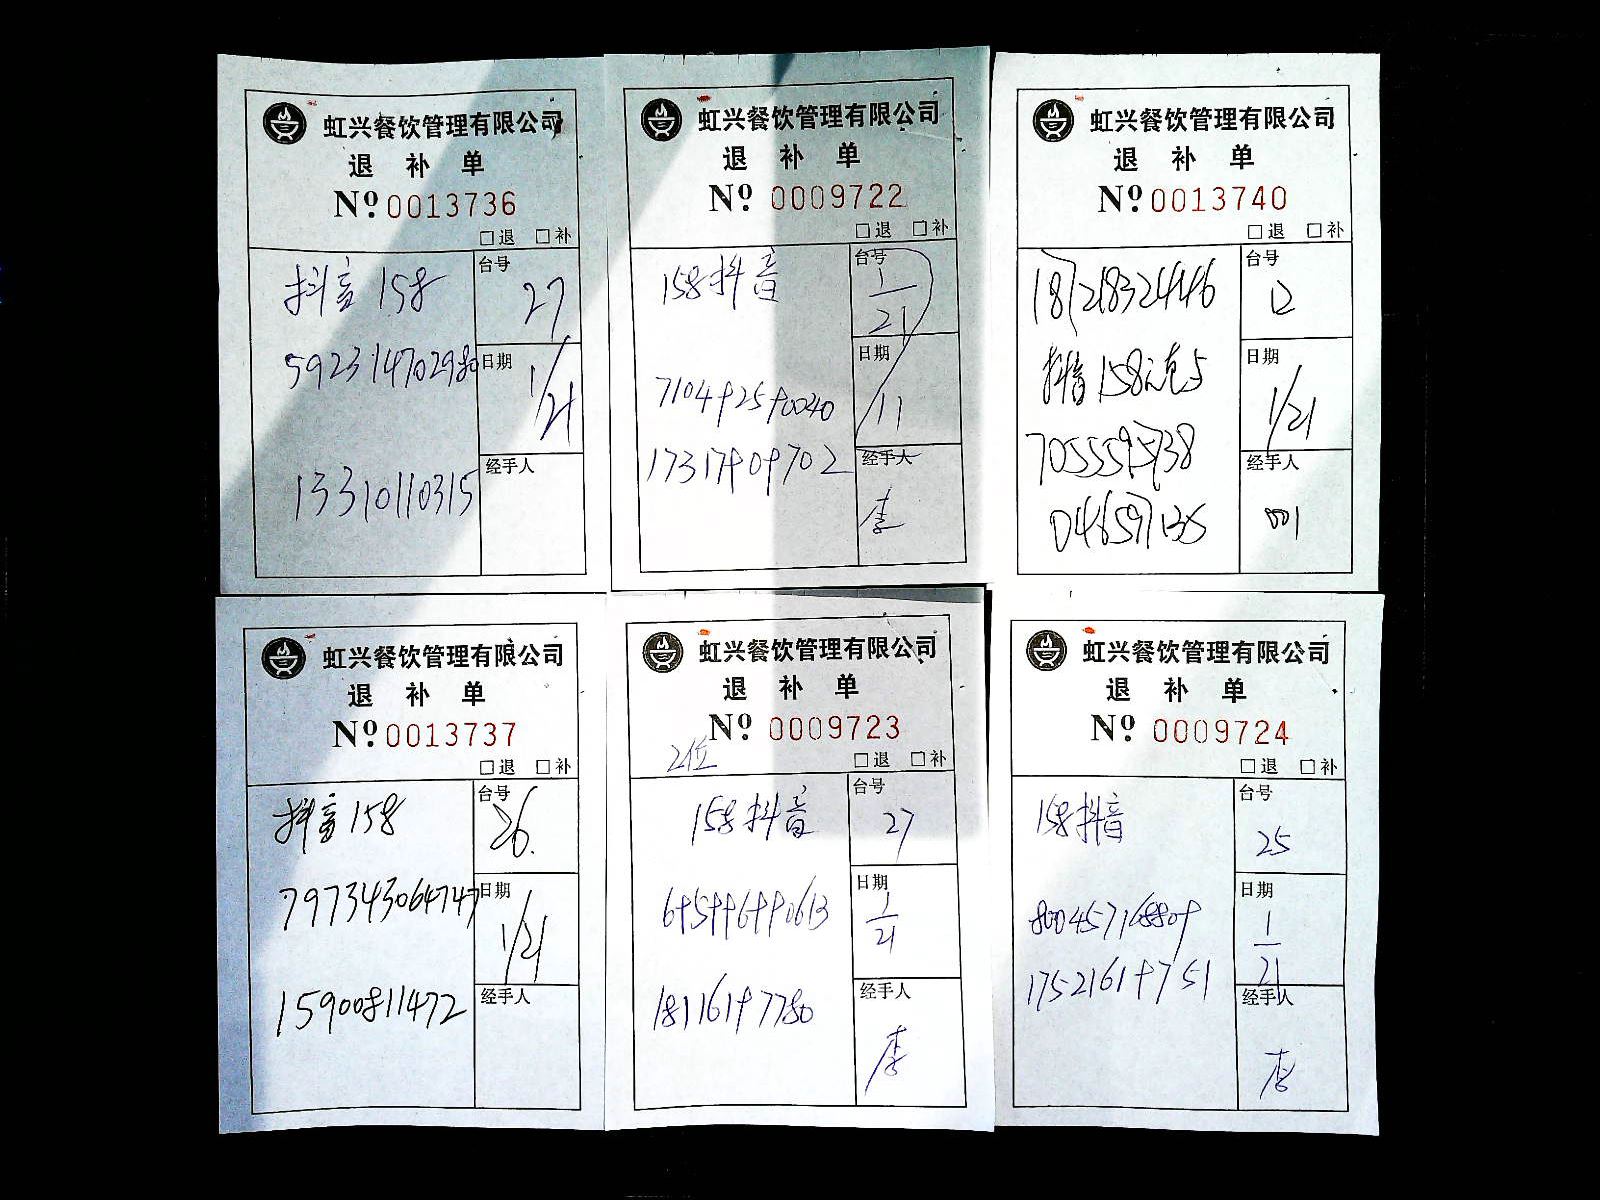 虹兴餐饮管理有限公司
退 补 单
Nº 0013736
□退 □补
抖音 158
台号
27
592314702980
日期
1/21
13310110315
经手人
虹兴餐饮管理有限公司
退 补 单
Nº 0009722
□退 □补
158抖音
台号
1
21
日期
11
7104912590040
17317909702
经手人
李
虹兴餐饮管理有限公司
退 补 单
Nº 0013740
□退 □补
18721832446
台号
12
抖音158元
日期
1/21
经手人
001
虹兴餐饮管理有限公司
退 补 单
Nº 0013737
□退 □补
抖音 158
台号
26.
797343064747
日期
1/21
15900811472
经手人
虹兴餐饮管理有限公司
退 补 单
Nº 0009723
2位
□退 □补
158抖音
台号
27
日期
1
21
18116197780
经手人
李
虹兴餐饮管理有限公司
退 补 单
Nº 0009724
□退 □补
158抖音
台号
25
800457168809
日期
1
21
17521619751
经手人
李